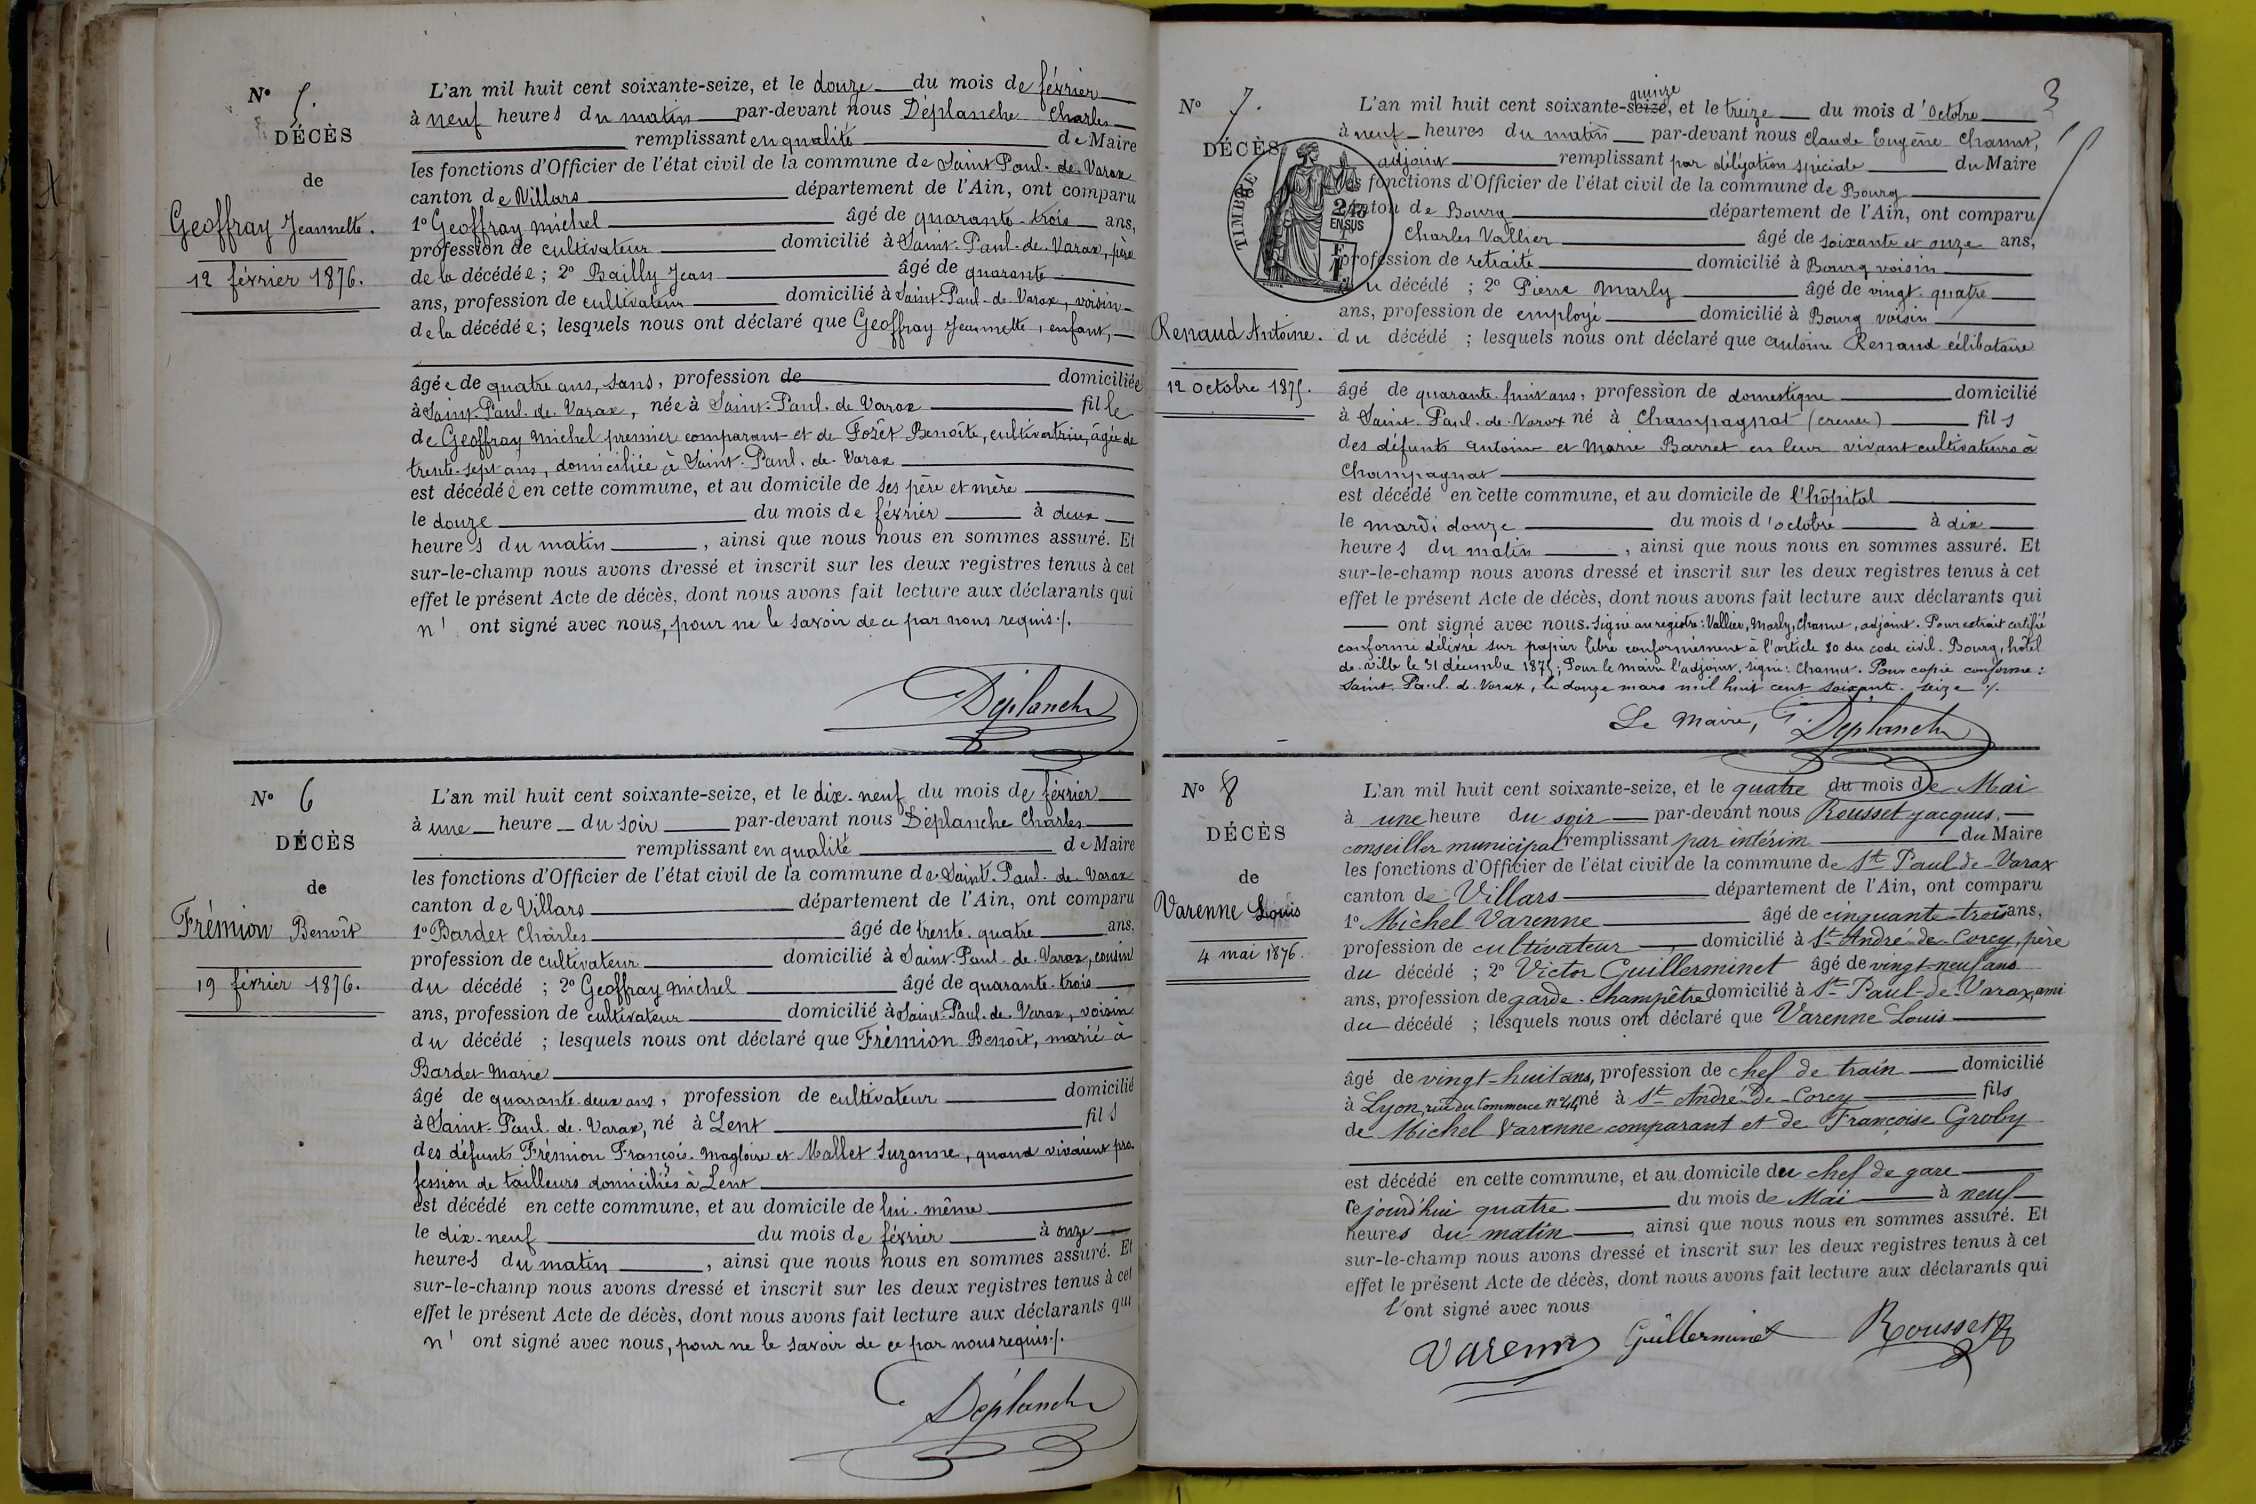 N° 5.
DÉCÈS
de
Geoffray Jeannette.
12 février 1876.
L'an mil huit cent soixante-seize, et le douze du mois de février
à neuf heures du matin par-devant nous Déplanche Charles
remplissant en qualité de Maire
les fonctions d'Officier de l'état civil de la commune de Saint-Paul-de-Varax
canton de Villars département de l'Ain, ont comparu
1° Geoffray michel âgé de quarante-trois ans,
profession de cultivateur domicilié à Saint-Paul-de-Varax, père
de la décédée; 2° Bailly Jean âgé de quarante
ans, profession de cultivateur domicilié à Saint-Paul-de-Varax, voisin
de la décédée; lesquels nous ont déclaré que Geoffray Jeannette, enfant,
âgée de quatre ans, sans, profession de domiciliée
à Saint-Paul-de-Varax, née à Saint-Paul-de-Varax fille
de Geoffray Michel premier comparant et de Forêt Benoîte, cultivatrice, âgée de
trente-sept ans, domiciliée à Saint-Paul-de-Varax
est décédée en cette commune, et au domicile de ses père et mère
le douze du mois de février à deux
heures du matin, ainsi que nous nous en sommes assuré. Et
sur-le-champ nous avons dressé et inscrit sur les deux registres tenus à cet
effet le présent Acte de décès, dont nous avons fait lecture aux déclarants qui
n' ont signé avec nous, pour ne le savoir de ce par nous requis./.
Déplanche
N° 6
DÉCÈS
de
Frémion Benoît
19 février 1876.
L'an mil huit cent soixante-seize, et le dix-neuf du mois de février
à une heure du soir par-devant nous Déplanche Charles
remplissant en qualité de Maire
les fonctions d'Officier de l'état civil de la commune de Saint-Paul-de-Varax
canton de Villars département de l'Ain, ont comparu
1° Bardet Charles âgé de trente-quatre ans,
profession de cultivateur domicilié à Saint-Paul-de-Varax, cousin
du décédé ; 2° Geoffray michel âgé de quarante-trois
ans, profession de cultivateur domicilié à Saint-Paul-de-Varax, voisin
du décédé ; lesquels nous ont déclaré que Frémion Benoît, marié à
Bardet Marie
âgé de quarante-deux ans, profession de cultivateur domicilié
à Saint-Paul-de-Varax, né à Lent fils
des défunts Frémion François-Magloire et Mallet Suzanne, quand vivaient pro-
fession de tailleurs domiciliés à Lent
est décédé en cette commune, et au domicile de lui-même
le dix-neuf du mois de février à onze
heures du matin, ainsi que nous nous en sommes assuré. Et
sur-le-champ nous avons dressé et inscrit sur les deux registres tenus à cet
effet le présent Acte de décès, dont nous avons fait lecture aux déclarants qui
n' ont signé avec nous, pour ne le savoir de ce par nous requis./.
Déplanche
3
N° 7.
DÉCÈS
TIMBRE
2/10
EN SUS
Renaud Antoine.
12 octobre 1875.
quinze
L'an mil huit cent soixante-seize, et le treize du mois d'octobre
à neuf heures du matin par-devant nous Claude Eugène Chanut,
adjoint remplissant par délégation spéciale du Maire
les fonctions d'Officier de l'état civil de la commune de Bourg
canton de Bourg département de l'Ain, ont comparu
Charles Vallier âgé de soixante et onze ans,
profession de retraité domicilié à Bourg voisin
du décédé ; 2° Pierre Marly âgé de vingt-quatre
ans, profession de employé domicilié à Bourg voisin
du décédé ; lesquels nous ont déclaré que Antoine Renaud célibataire
âgé de quarante-huit ans, profession de domestique domicilié
à Saint-Paul-de-Varax né à Champagnat (creuse) fils
des défunts Antoine et Marie Barret en leur vivant cultivateurs à
Champagnat
est décédé en cette commune, et au domicile de l'hôpital
le mardi douze du mois d'octobre à dix
heures du matin, ainsi que nous nous en sommes assuré. Et
sur-le-champ nous avons dressé et inscrit sur les deux registres tenus à cet
effet le présent Acte de décès, dont nous avons fait lecture aux déclarants qui
ont signé avec nous. Signé au registre: Vallier, Marly, Chanut, adjoint. Pour extrait certifié
conforme délivré sur papier libre conformément à l'article 80 du code civil. Bourg, hôtel
de ville le 31 décembre 1875; Pour le maire l'adjoint, signé: Chanut. Pour copie conforme:
Saint-Paul-de-Varax, le douze mars mil huit cent soixante-seize ./.
Le Maire, Déplanche
N° 8
DÉCÈS
de
Varenne Louis
4 mai 1876.
L'an mil huit cent soixante-seize, et le quatre du mois de Mai
à une heure du soir par-devant nous Rousset Jacques,
conseiller municipal remplissant par intérim du Maire
les fonctions d'Officier de l'état civil de la commune de St Paul-de-Varax
canton de Villars département de l'Ain, ont comparu
1° Michel Varenne âgé de cinquante-trois ans,
profession de cultivateur domicilié à St-André-de-Corcy, père
du décédé ; 2° Victor Guillerminet âgé de vingt-neuf ans
ans, profession de garde-champêtre domicilié à St-Paul-de-Varax, ami
du décédé ; lesquels nous ont déclaré que Varenne Louis
âgé de vingt-huit ans, profession de chef de train domicilié
à Lyon, rue du Commerce n° 44 né à St-André-de-Corcy fils
de Michel Varenne comparant et de Françoise Groby
est décédé en cette commune, et au domicile du chef de gare
ce jourd'hui quatre du mois de Mai à neuf
heures du matin, ainsi que nous nous en sommes assuré. Et
sur-le-champ nous avons dressé et inscrit sur les deux registres tenus à cet
effet le présent Acte de décès, dont nous avons fait lecture aux déclarants qui
l'ont signé avec nous
Varenne Guillerminet Rousset